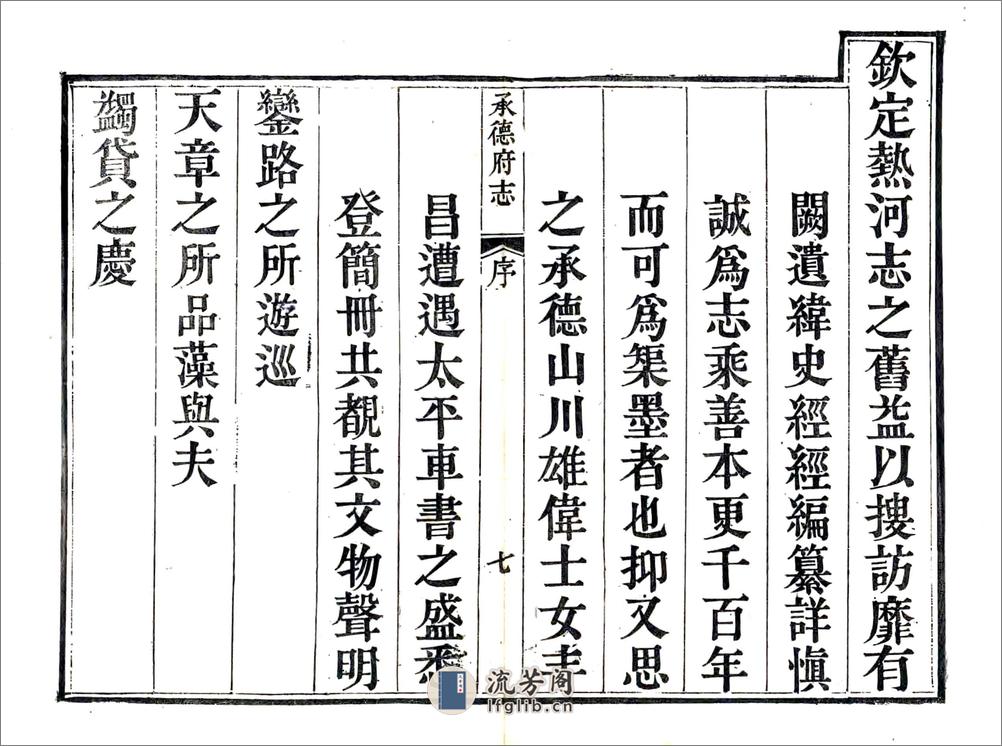 欽定熱河志之舊益以搜訪靡有
闕遺緯史經經編纂詳愼
誠爲志乘善本更千百年
而可爲榘墨者也抑又思
之承德山川雄偉士女
承德府志
序
七
昌遭遇太平車書之盛悉
登簡冊共覩其文物聲明
鑾路之所遊巡
天章之所品藻與夫
蠲貸之慶
流芳阁
lfglib.cn